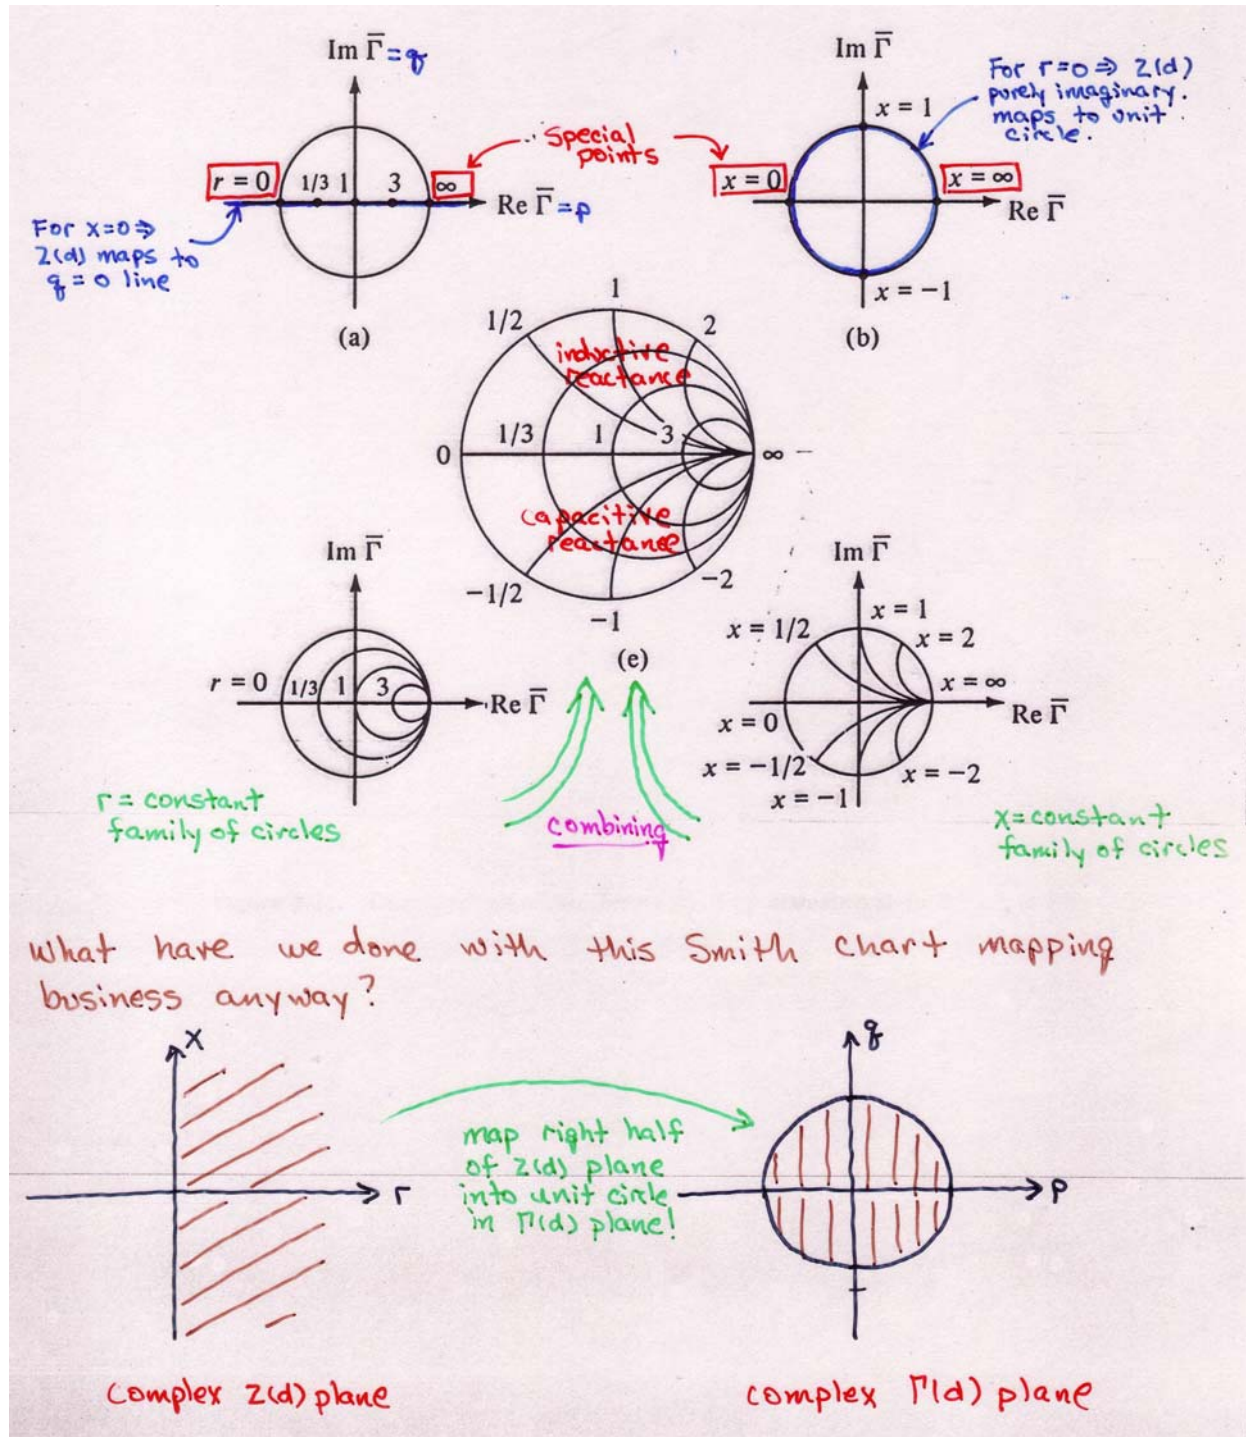 Im Γ̅ = q
r = 0
1/3
1
3
∞
Re Γ̅ = p
For x=0 ⇒
Z(d) maps to
q = 0 line
(a)
Special
points
Im Γ̅
x = 1
x = 0
x = ∞
Re Γ̅
x = −1
(b)
For r=0 ⇒ Z(d)
purely imaginary.
maps to unit
circle.
1
1/2
2
inductive
reactance
0
1/3
1
3
∞
capacitive
reactance
−1/2
−2
−1
(e)
Im Γ̅
r = 0
1/3
1
3
Re Γ̅
r = constant
family of circles
combining
Im Γ̅
x = 1/2
x = 1
x = 2
x = ∞
x = 0
Re Γ̅
x = −1/2
x = −2
x = −1
x=constant
family of circles
What have we done with this Smith chart mapping
business anyway?
x
r
map right half
of Z(d) plane
into unit circle
in Γ(d) plane!
q
p
complex Z(d) plane
complex Γ(d) plane